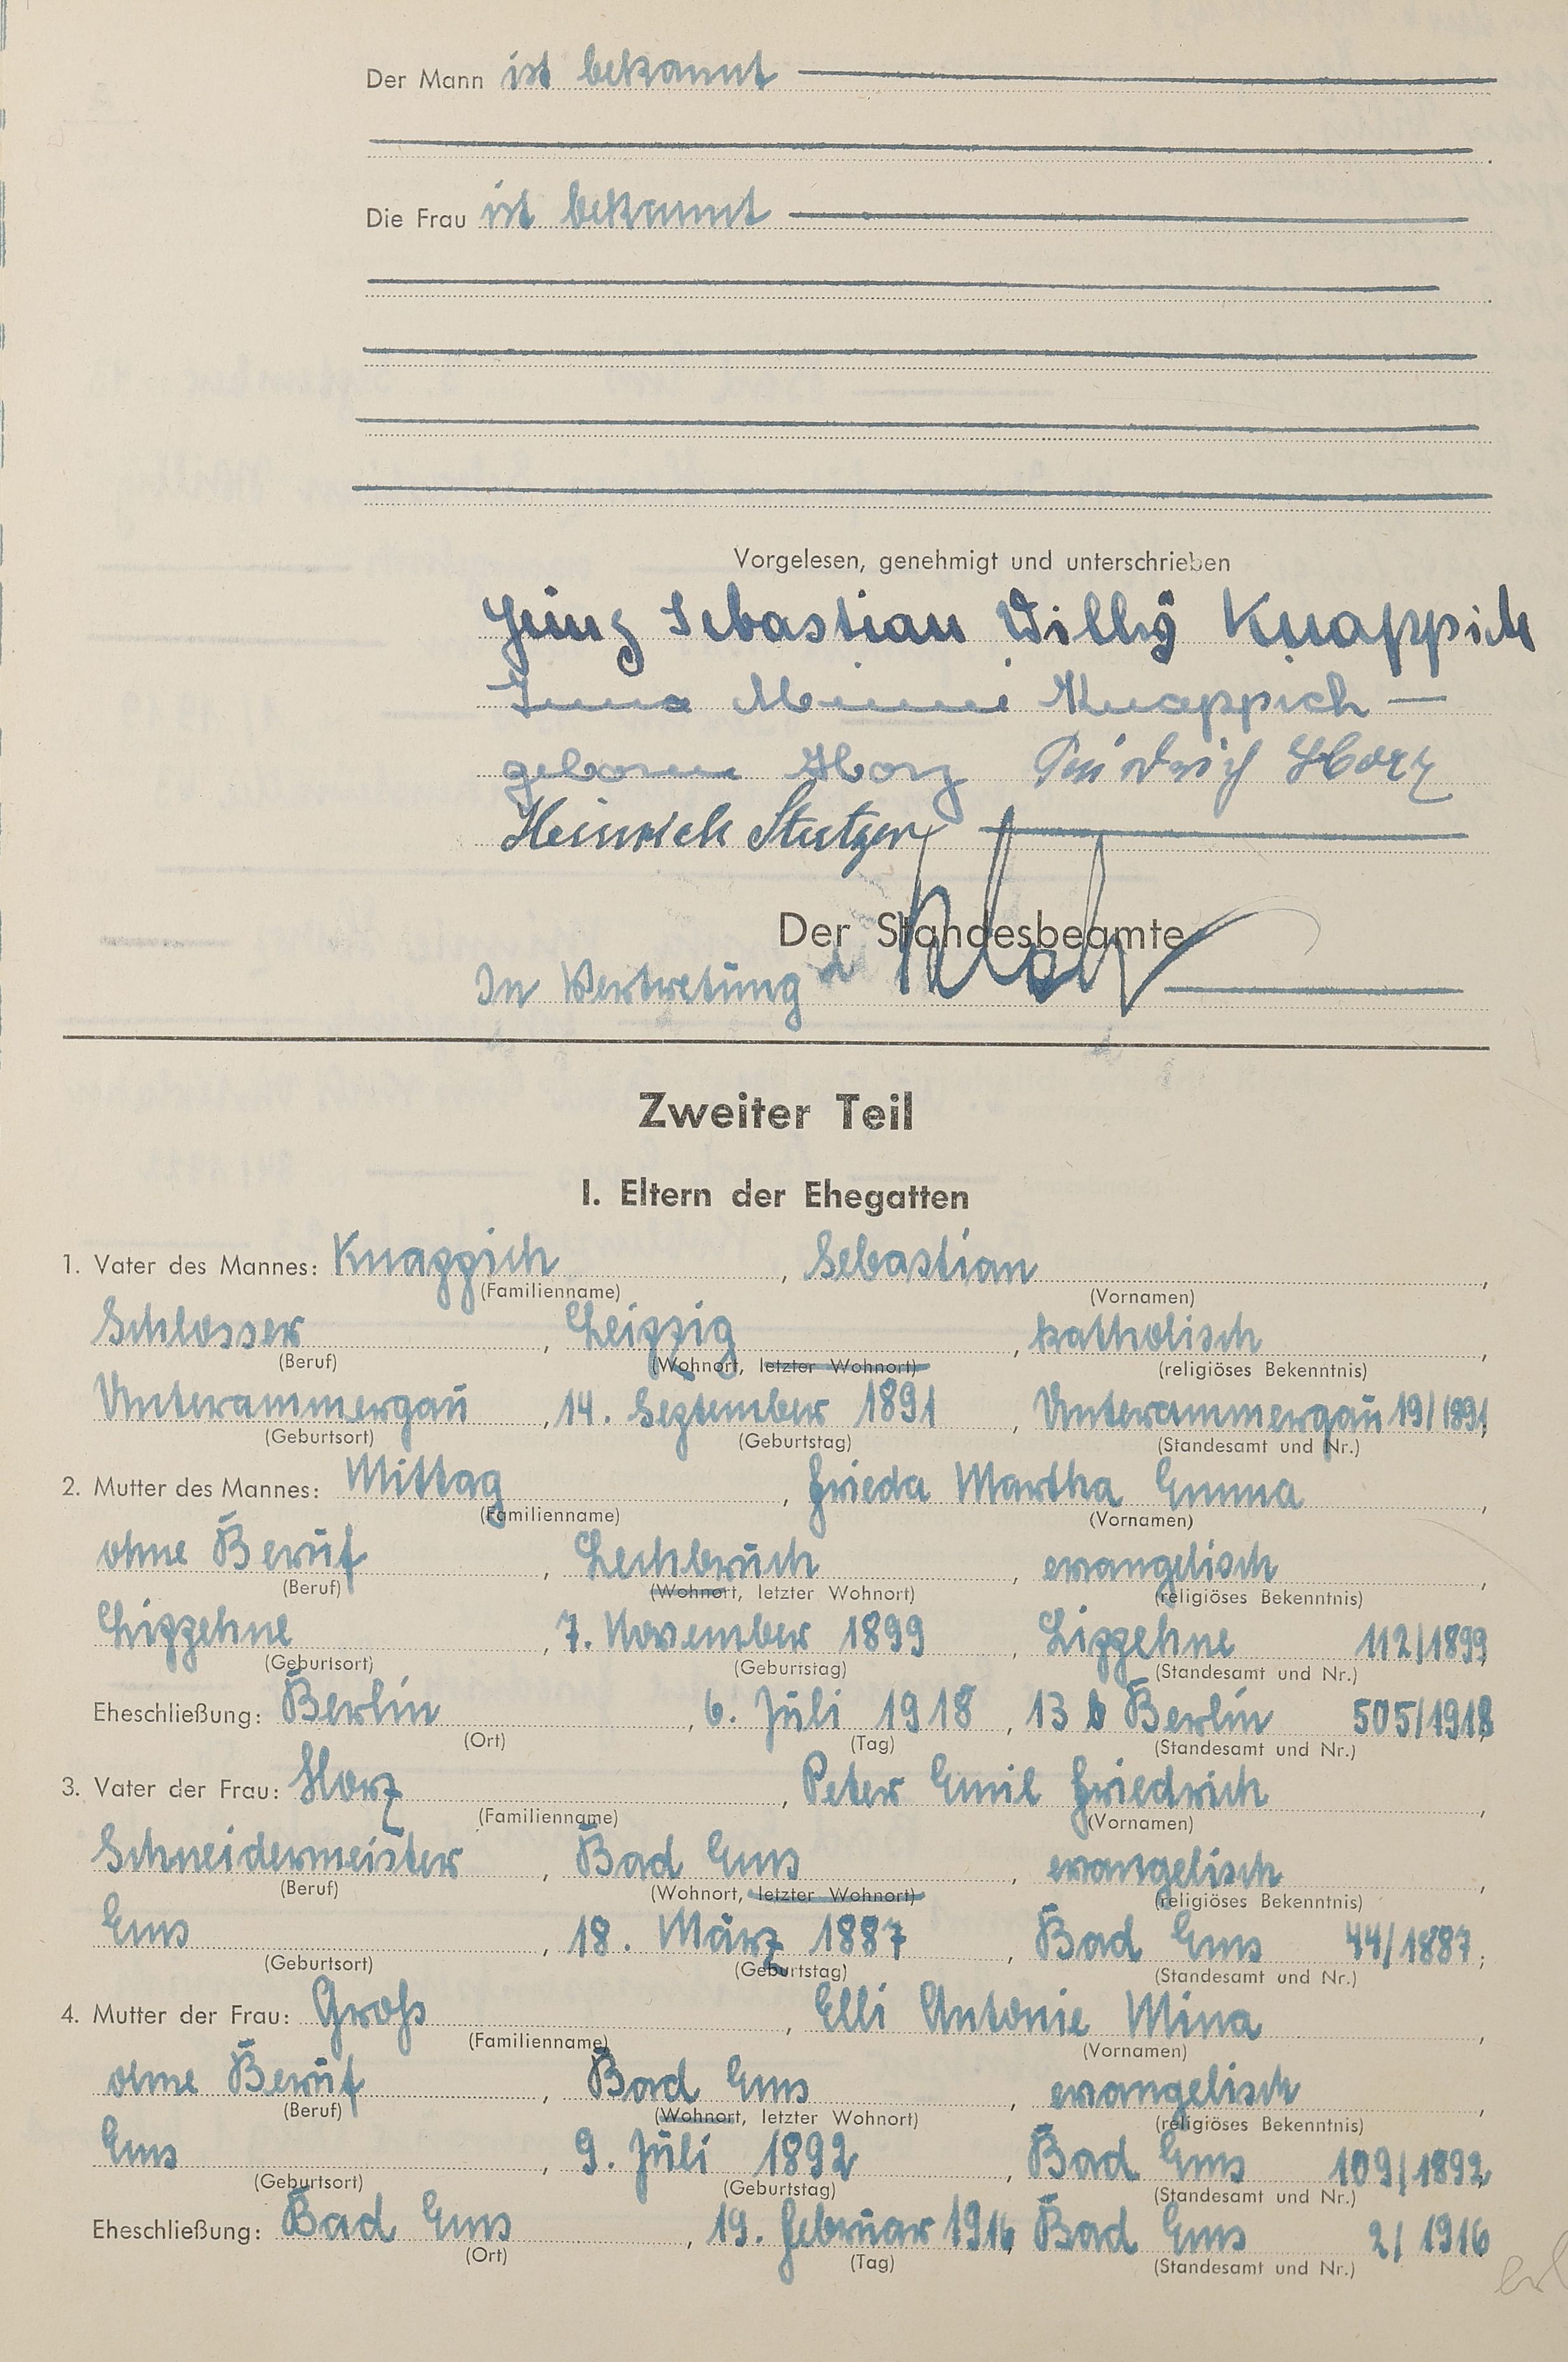 Der Mann ist bekannt
Die Frau ist bekannt
Vorgelesen, genehmigt und unterschrieben
Heinz Sebastian Willy Knappich
Minni Knappich
geborene Horz Friedrich Horz
Heinrich Stutzer
Der Standesbeamte
In Vertretung
Zweiter Teil
I. Eltern der Ehegatten
1. Vater des Mannes: Knappich, Sebastian,
(Familienname) (Vornamen)
Schlosser, Leipzig, katholisch,
(Beruf) (Wohnort, letzter Wohnort) (religiöses Bekenntnis)
Unterammergau, 14. September 1891, Unterammergau 19/1891,
(Geburtsort) (Geburtstag) (Standesamt und Nr.)
2. Mutter des Mannes: Mittag, Frieda Martha Emma,
(Familienname) (Vornamen)
ohne Beruf, Lechbruch, evangelisch,
(Beruf) (Wohnort, letzter Wohnort) (religiöses Bekenntnis)
Lippehne, 7. November 1899, Lippehne 112/1899,
(Geburtsort) (Geburtstag) (Standesamt und Nr.)
Eheschließung: Berlin, 6. Juli 1918, 13 b Berlin 505/1918
(Ort) (Tag) (Standesamt und Nr.)
3. Vater der Frau: Horz, Peter Emil Friedrich,
(Familienname) (Vornamen)
Schneidermeister, Bad Ems, evangelisch,
(Beruf) (Wohnort, letzter Wohnort) (religiöses Bekenntnis)
Ems, 18. März 1887, Bad Ems 44/1887;
(Geburtsort) (Geburtstag) (Standesamt und Nr.)
4. Mutter der Frau: Groß, Elli Antonie Mina,
(Familienname) (Vornamen)
ohne Beruf, Bad Ems, evangelisch,
(Beruf) (Wohnort, letzter Wohnort) (religiöses Bekenntnis)
Ems, 9. Juli 1892, Bad Ems 109/1892,
(Geburtsort) (Geburtstag) (Standesamt und Nr.)
Eheschließung: Bad Ems, 19. Februar 1916, Bad Ems 2/1916
(Ort) (Tag) (Standesamt und Nr.)